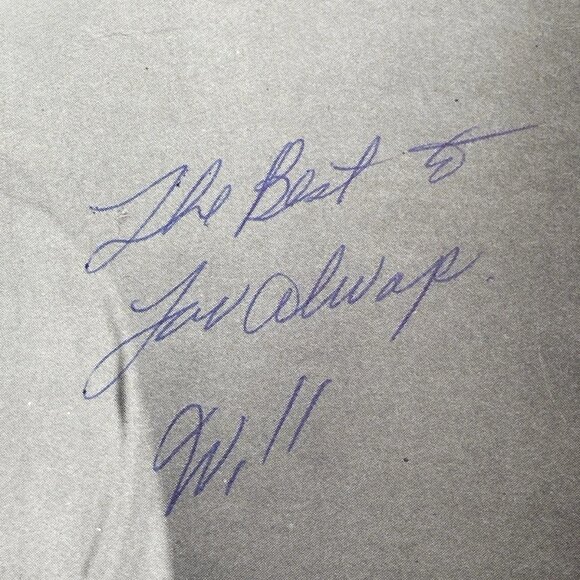 The Best to
You Always.
Will